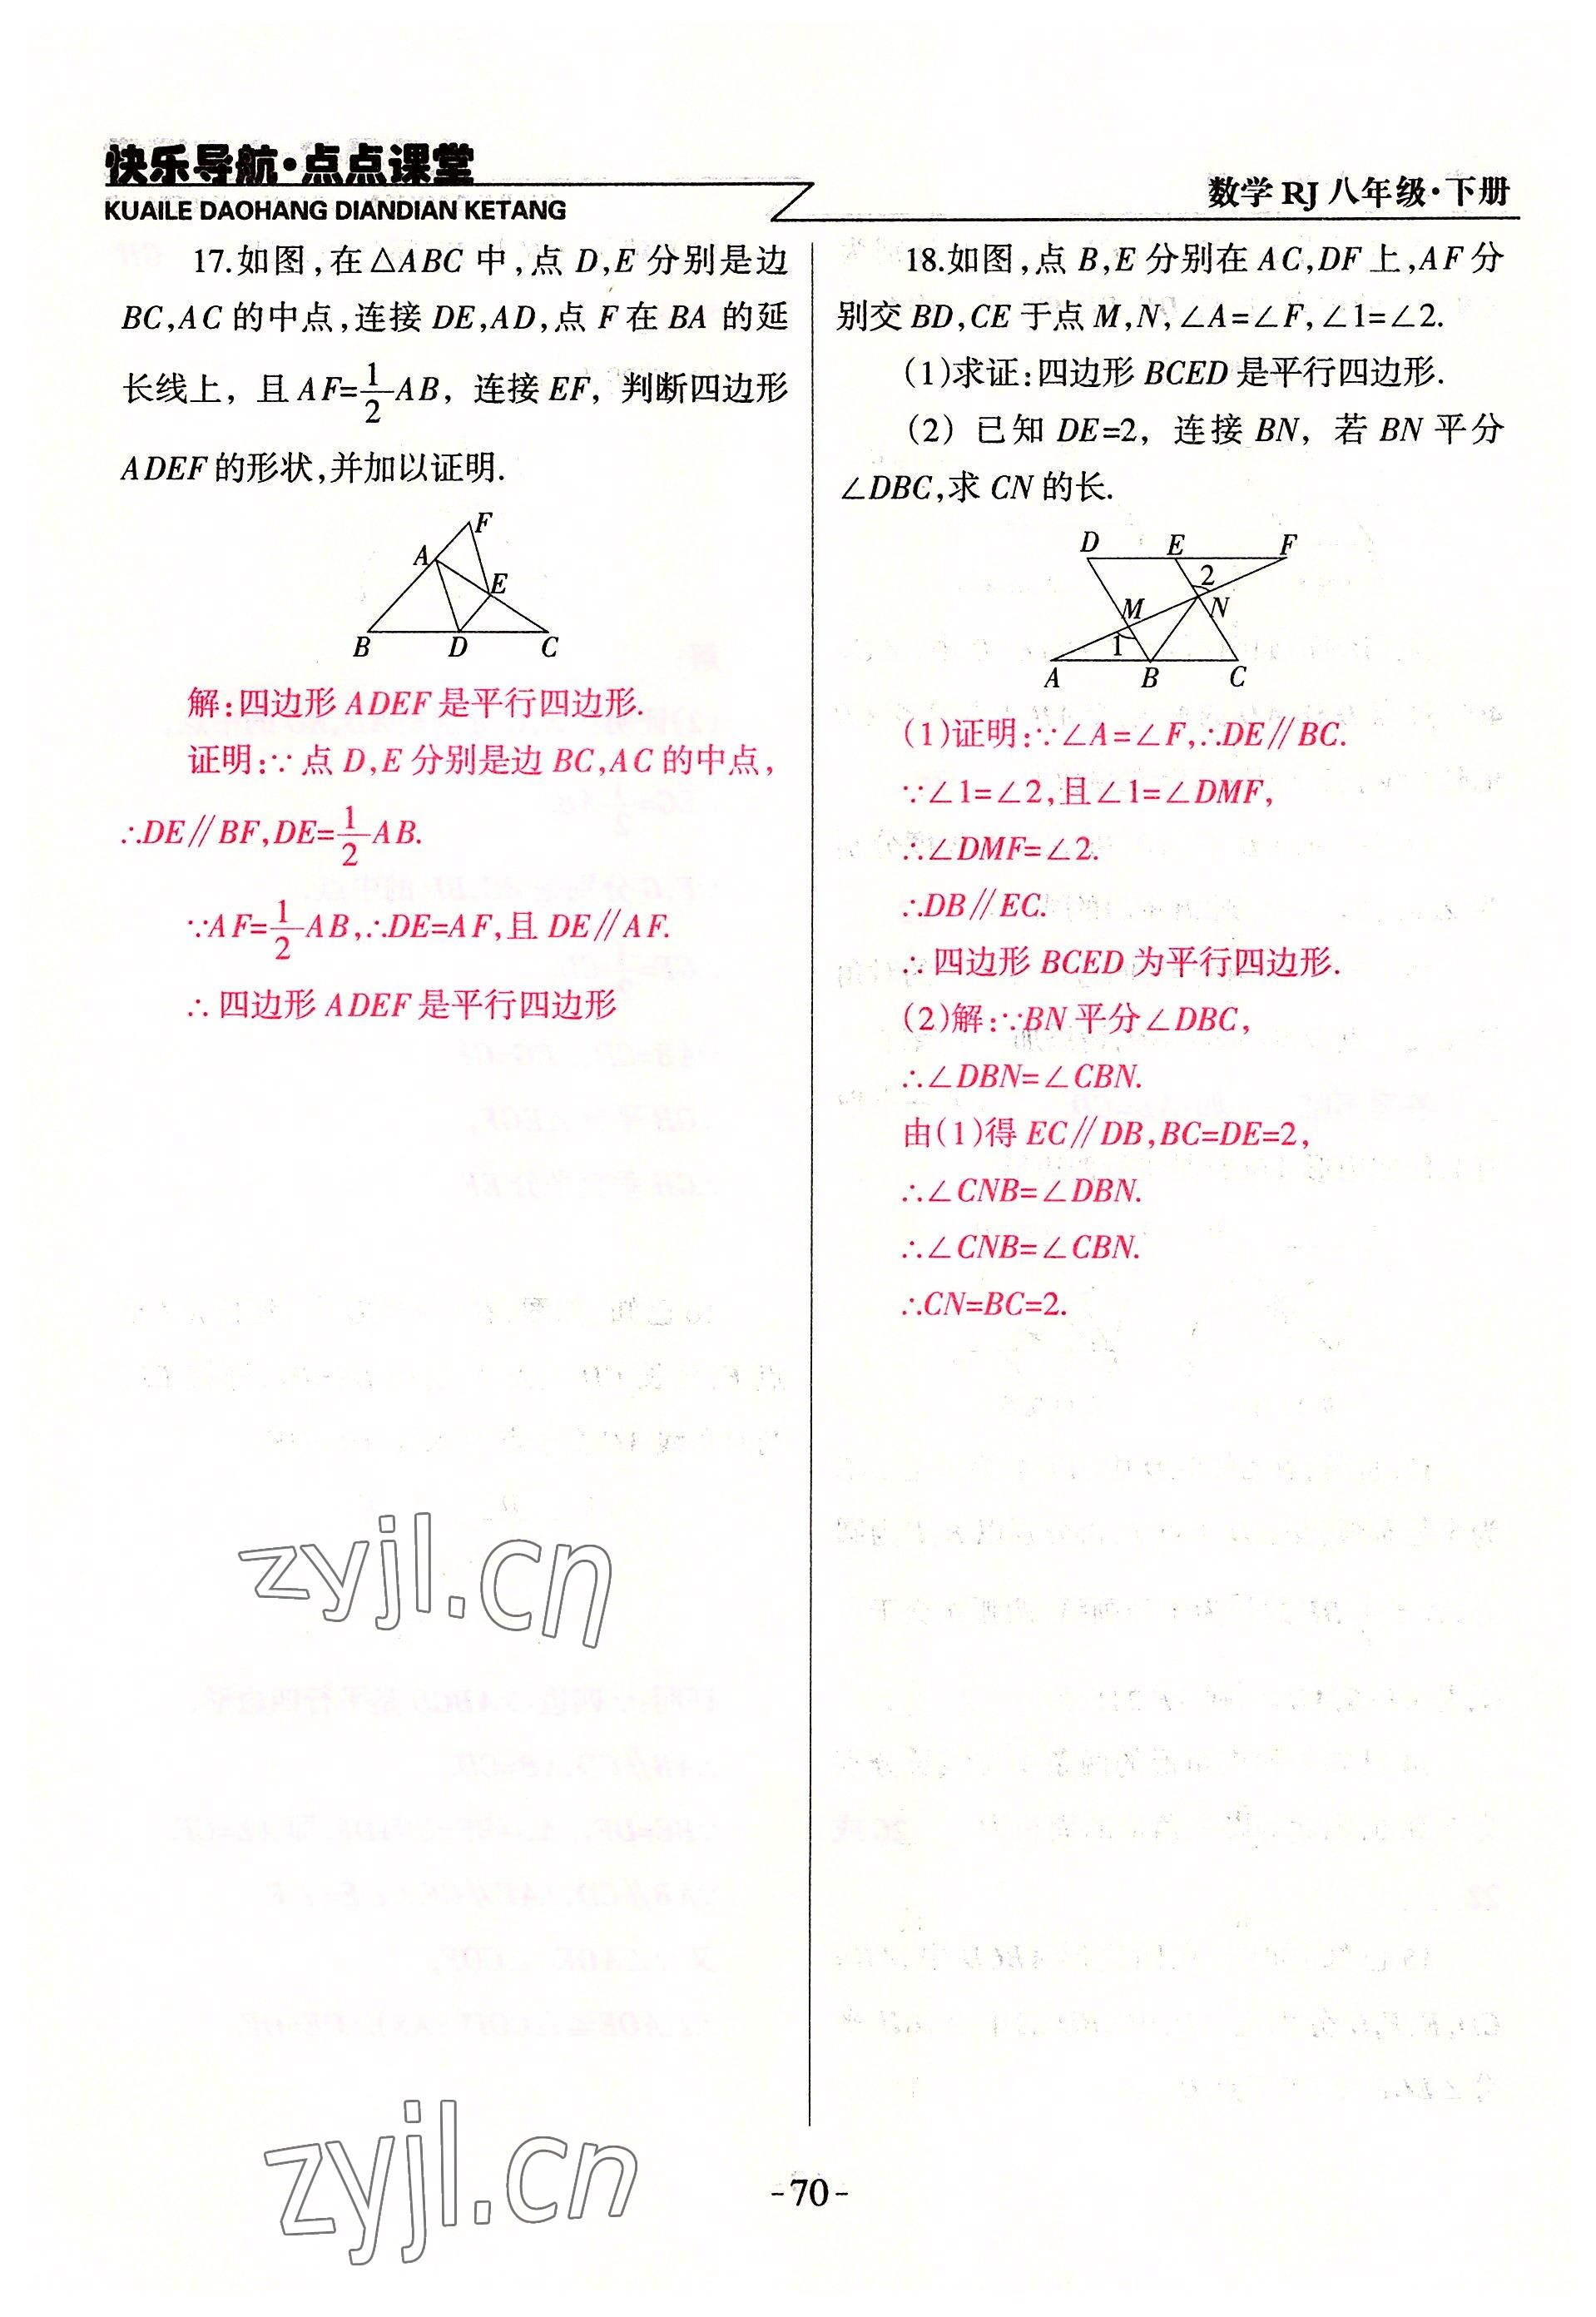 快乐导航·点点课堂
KUAILE DAOHANG DIANDIAN KETANG
数学 RJ 八年级·下册
17.如图,在△ABC 中,点 D,E 分别是边
BC,AC 的中点,连接 DE,AD,点 F 在 BA 的延
长线上，且 AF=1/2AB，连接 EF，判断四边形
ADEF 的形状,并加以证明.
F
A
E
B
D
C
解:四边形 ADEF 是平行四边形.
证明:∵点 D,E 分别是边 BC,AC 的中点,
∴DE∥BF,DE=1/2AB.
∵AF=1/2AB,∴DE=AF,且 DE∥AF.
∴四边形 ADEF 是平行四边形
18.如图,点 B,E 分别在 AC,DF 上,AF 分
别交 BD,CE 于点 M,N,∠A=∠F,∠1=∠2.
(1)求证:四边形 BCED 是平行四边形.
(2) 已知 DE=2，连接 BN，若 BN 平分
∠DBC,求 CN 的长.
D
E
F
2
M
N
1
A
B
C
(1)证明:∵∠A=∠F,∴DE∥BC.
∵∠1=∠2,且∠1=∠DMF,
∴∠DMF=∠2.
∴DB∥EC.
∴四边形 BCED 为平行四边形.
(2)解:∵BN 平分∠DBC,
∴∠DBN=∠CBN.
由(1)得 EC∥DB,BC=DE=2,
∴∠CNB=∠DBN.
∴∠CNB=∠CBN.
∴CN=BC=2.
zyjl.cn
zyjl.cn
-70-